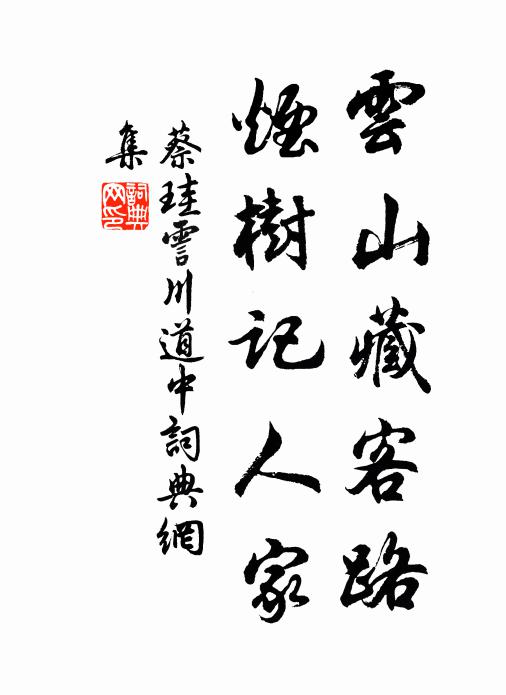 雲山藏客路
煙樹記人家
蔡珪霅川道中詞典網
集
詞典
网印